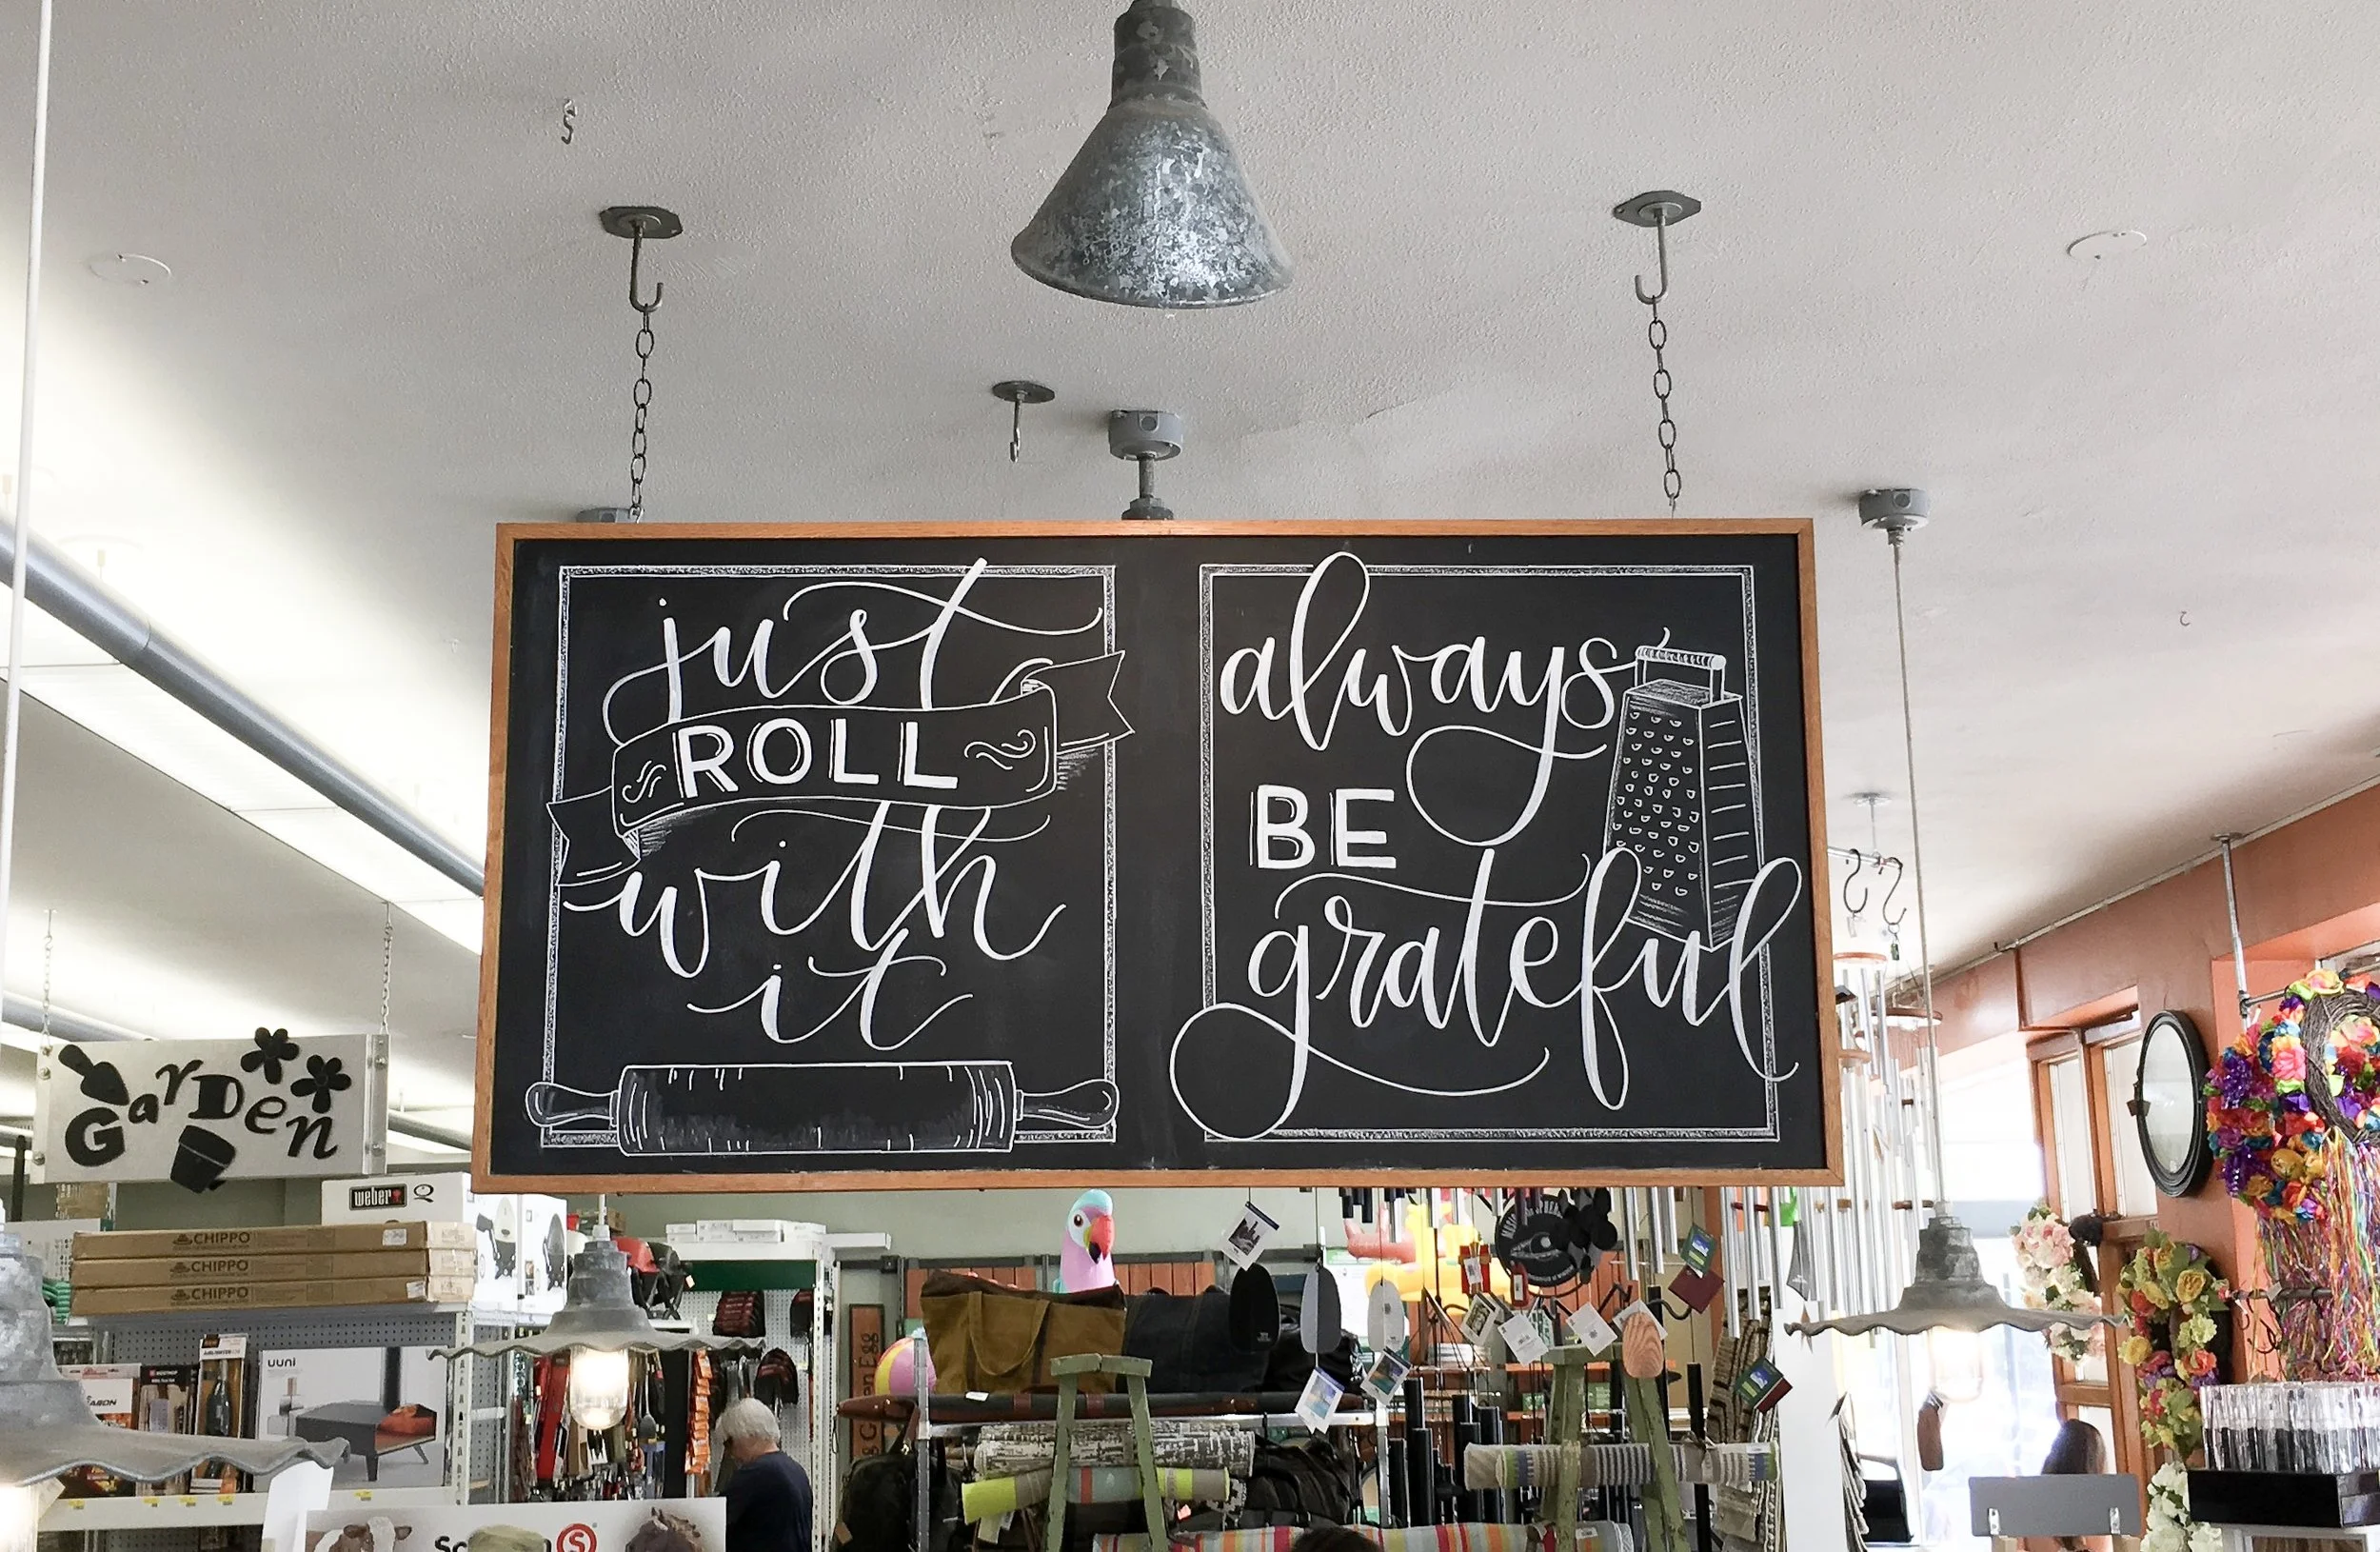 just
ROLL
with
it
always
BE
grateful
Garden
weber Q
CHIPPO
CHIPPO
CHIPPO
uuni